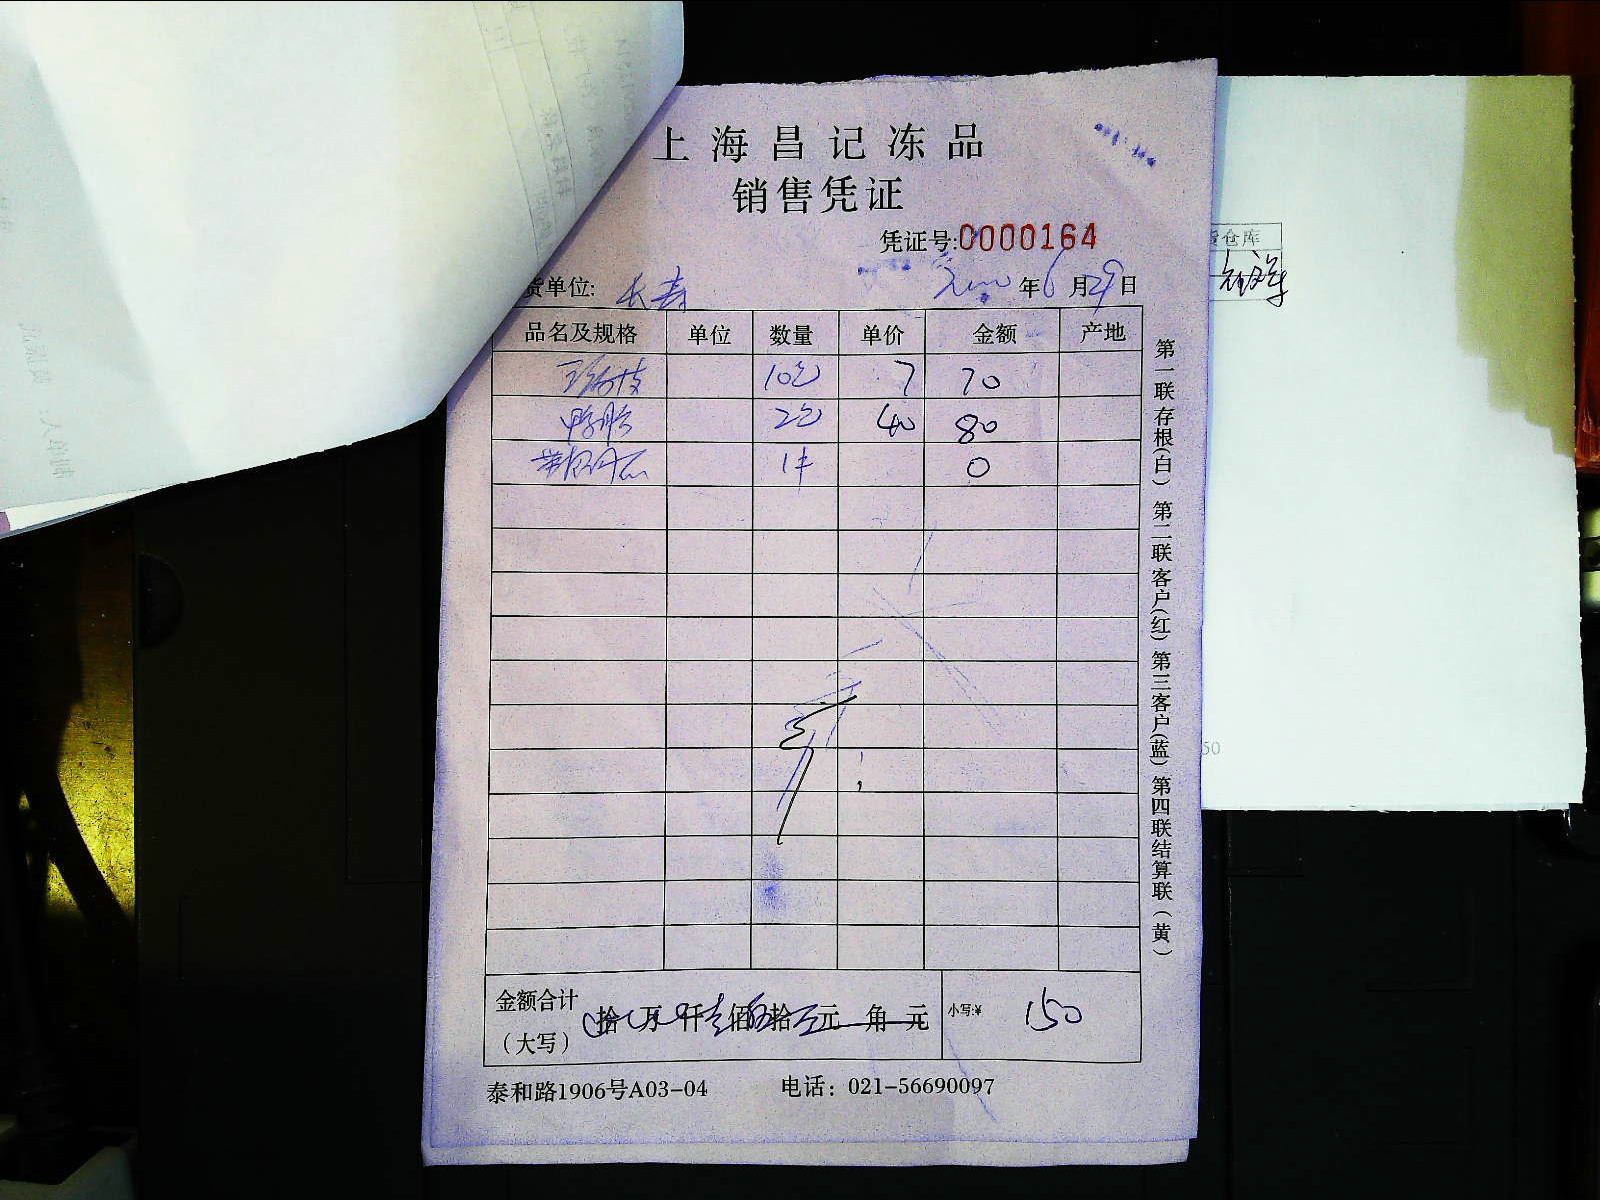 上海昌记冻品
销售凭证
凭证号:0000164
货单位: 长寿
年6月29日
品名及规格 单位 数量 单价 金额 产地
10包 7 70
鸭肫 2包 40 80
1件 0
金额合计
(大写)
拾 万 仟 壹佰 伍拾 元 角 元 小写:¥ 150
泰和路1906号A03-04 电话: 021-56690097
第一联存根(白) 第二联客户(红) 第三客户(蓝) 第四联结算联(黄)
仓库
50